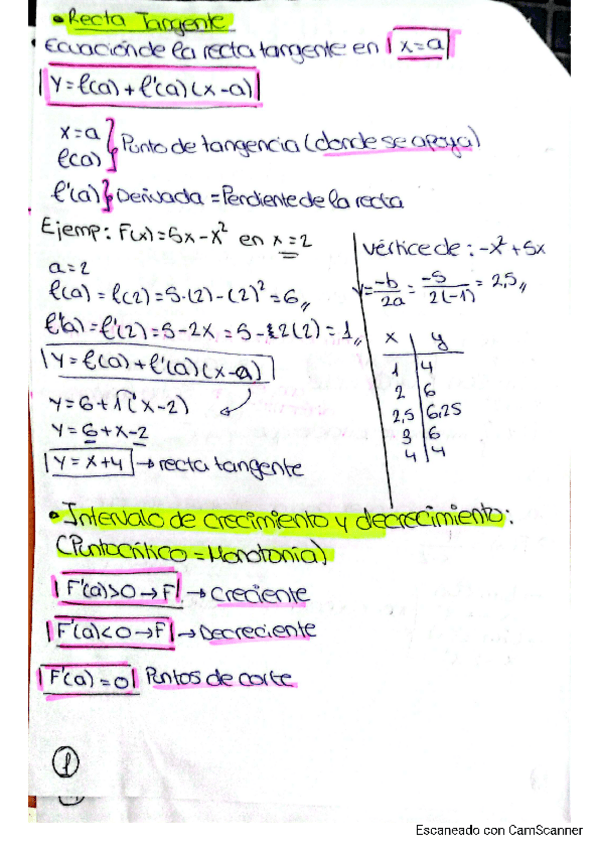 • Recta Tangente
Ecuación de la recta tangente en x=a
y=f(a)+f'(a)(x-a)
x=a
f(a)
} Punto de tangencia (donde se apoya)
f'(a)} Derivada = Pendiente de la recta
Ejemp: F(x)=5x-x² en x=2
a=2
f(a)=f(2)=5·(2)-(2)²=6,,
f'(a)=f'(2)=5-2x=5-2(2)=1,,
y=f(a)+f'(a)(x-a)
y=6+1(x-2)
y=6+x-2
y=x+4 → recta tangente
vértice de: -x²+5x
v=-b/2a = -5/2(-1) = 2,5,,
x | y
1 | 4
2 | 6
2,5 | 6,25
3 | 6
4 | 4
• Intervalo de crecimiento y decrecimiento:
(Punto crítico = Monotonía)
F'(a)>0→F → Creciente
F'(a)<0→F → Decreciente
F'(a)=0 Puntos de corte
1
Escaneado con CamScanner